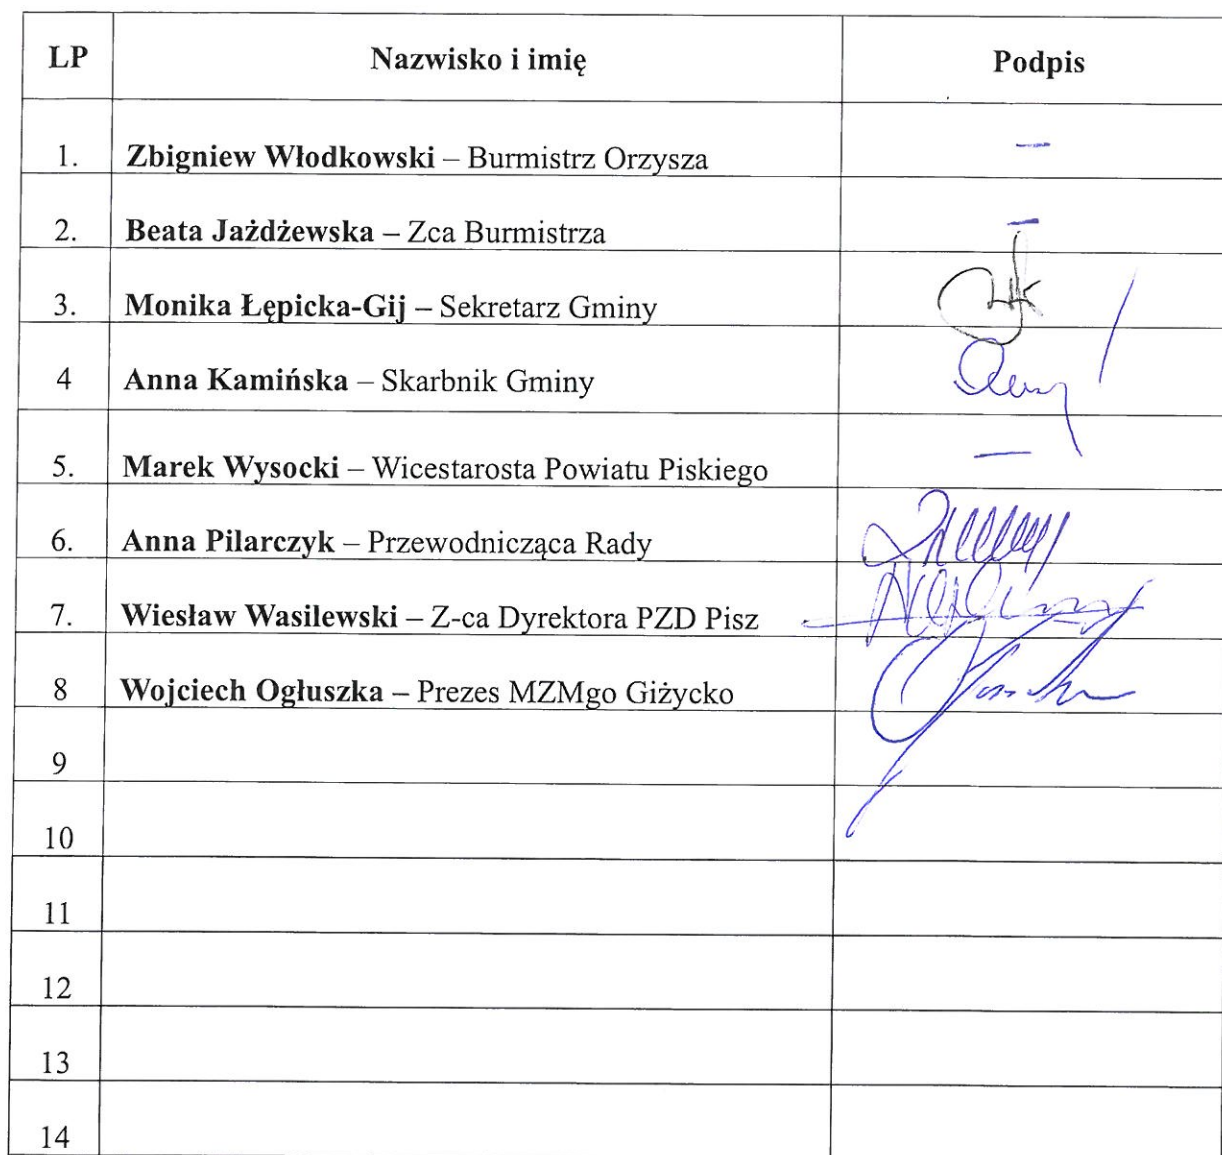 LP Nazwisko i imię Podpis
1. Zbigniew Włodkowski – Burmistrz Orzysza –
2. Beata Jażdżewska – Zca Burmistrza –
3. Monika Łępicka-Gij – Sekretarz Gminy
4 Anna Kamińska – Skarbnik Gminy
5. Marek Wysocki – Wicestarosta Powiatu Piskiego –
6. Anna Pilarczyk – Przewodnicząca Rady
7. Wiesław Wasilewski – Z-ca Dyrektora PZD Pisz
8 Wojciech Ogłuszka – Prezes MZMgo Giżycko
9
10
11
12
13
14